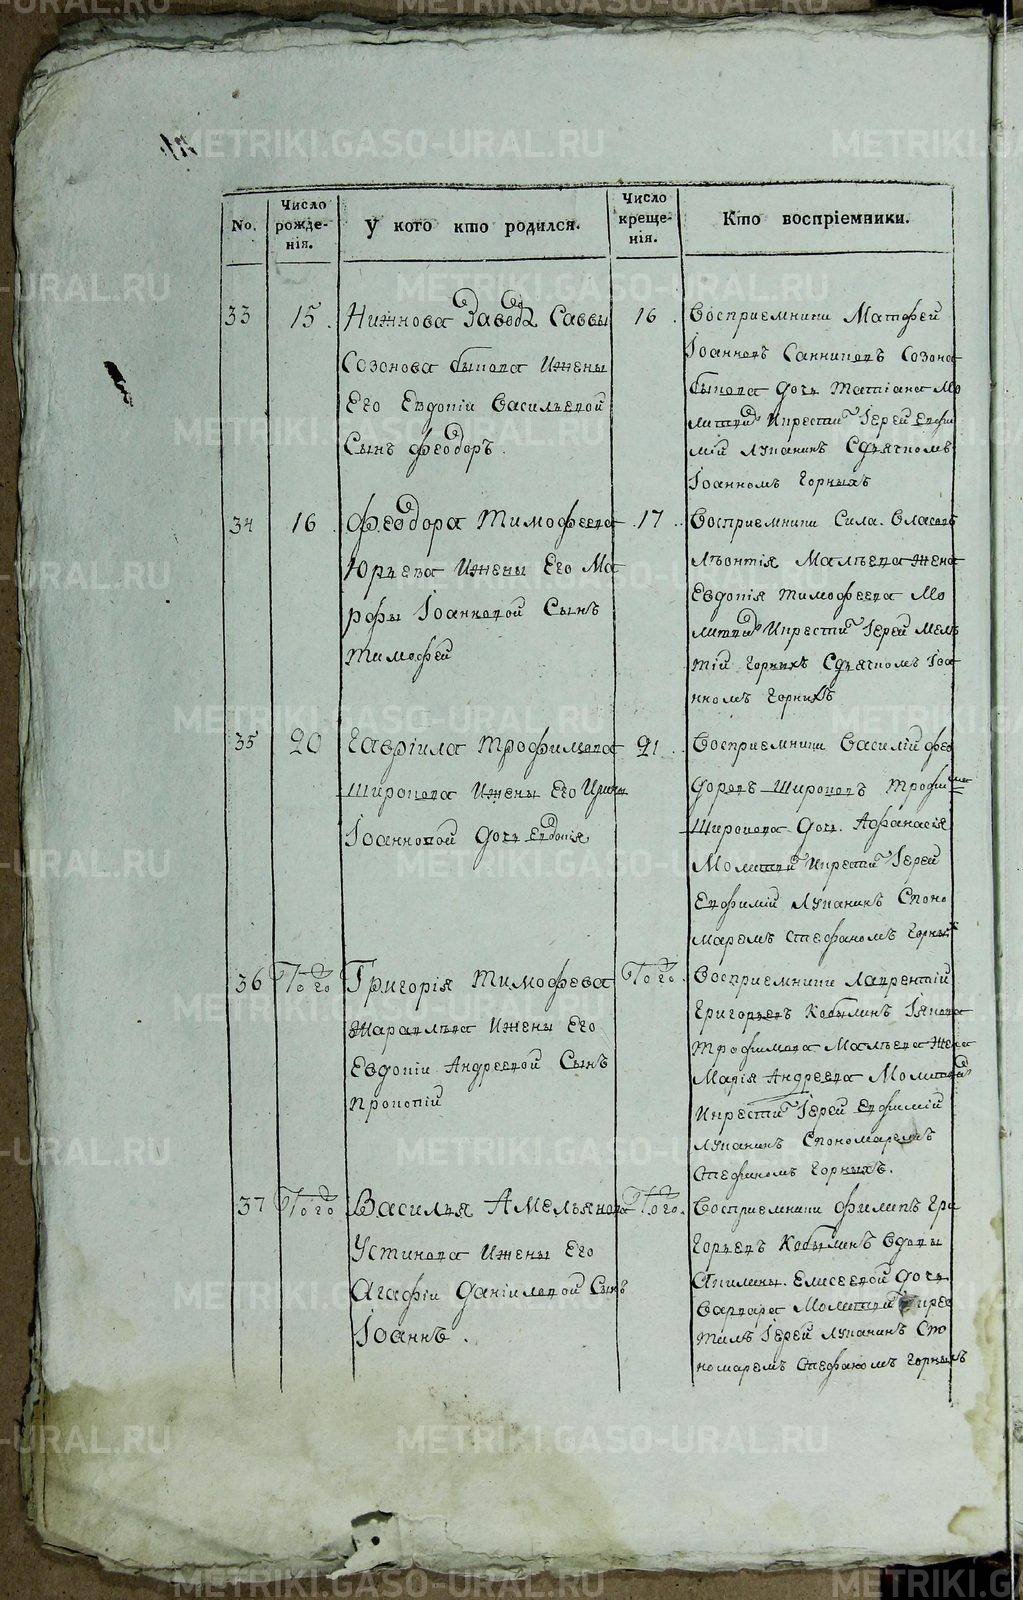 No.
Число рожденія.
У кого кто родился.
Число крещенія.
Кто воспріемники.
33
15.
Нижнова Завода Саввы
Созонова Быкова Ижены
Его Евдокіи Васильевой
Сынъ Феодоръ.
16.
Восприемники Матфей
Іоанновъ Санниковъ Созона
Быкова дочь Татіана Мо
литвы Икрестил Іерей Евфи
мій Лукани​нъ Сдьячкомъ
Іоанномъ Горныхъ
34
16
Феодора Тимофеева
Юрьева Ижены Его Ма
рфы Іоанновой Сынъ
Тимофей
17.
Восприемники Сила Власовъ
Евдокія Тимофеева Мо
литвы Икрестил Іерей
Горныхъ Сдьячкомъ Іоа
нномъ Горнихъ
35
20
Гавріила Трофимова
Широкова Ижены Его Ирины
Іоанновой дочь Евдокія
21.
Восприемники Василій Фео
доровъ Широковъ Трофима
Широкова дочь Афанасія
Молитвы Икрестил Іерей
Евфимій Луканинъ Споно
маремъ Стефаномъ Горныхъ
36
Того
Григорія Тимофева
Жаравлева Ижены Его
Евдокіи Андреевой Сынъ
Прокопій
Того.
Восприемники Лаврентій
Григорьевъ Кобылинъ Іякова
Трофимова Мальцева Жена
Марія Андреева Молитвы
Икрестил Іерей Евфимій
Луканинъ Спономаремъ
Стефаномъ Горныхъ.
37
Того
Василья Амельянова
Устинова Ижены Его
Агафіи Даніиловой Сынъ
Іоаннъ.
Того.
Восприемники Филипъ Гри
горьевъ Кобылинъ Вдовы
Акилины Елисеевой дочь
Варвара Молитвы Икрес
тилъ Іерей Луканинъ Спо
номаремъ Стефаномъ Горныхъ
METRIKI.GASO-URAL.RU